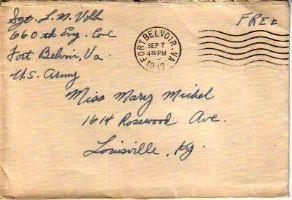 Sgt. L. M. Volk
660th Eng. Co C
Fort Belvoir, Va.
U.S. Army
FORT BELVOIR, VA.
SEP 7
PM
FREE
Miss Mary Michel
1614 Rosewood Ave.
Louisville, Ky.